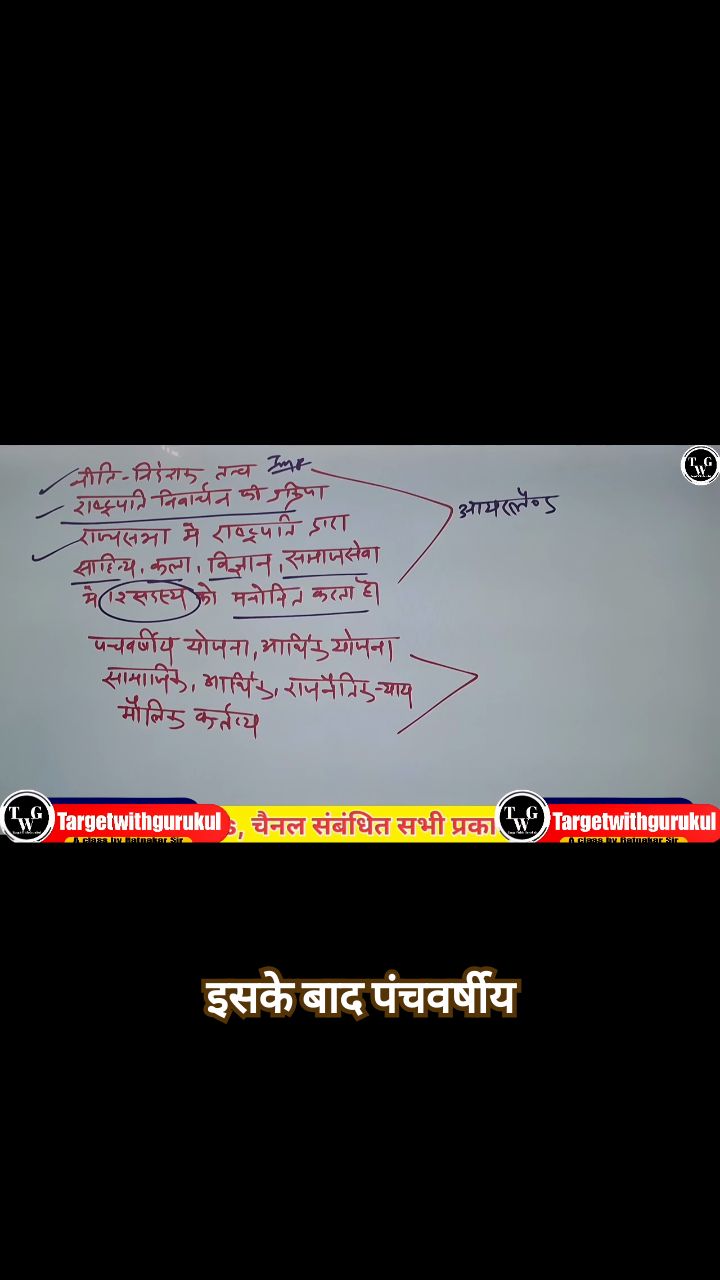 T G
W
नीति-निदेशक तत्व Imp
राष्ट्रपति निवार्चन की प्रक्रिया
राज्यसभा में राष्ट्रपति द्वारा
साहित्य, कला, विज्ञान, समाजसेवा
में 12 सदस्य को मनोनित करता है।
आयरलैण्ड
पंचवर्षीय योजना, आर्थिक योजना
सामाजिक, आर्थिक, राजनैतिक-न्याय
मौलिक कर्तव्य
T G
W
Targetwithgurukul
A class by Ratnakar Sir
, चैनल संबंधित सभी प्रका
T G
W
Targetwithgurukul
A class by Ratnakar Sir
इसके बाद पंचवर्षीय